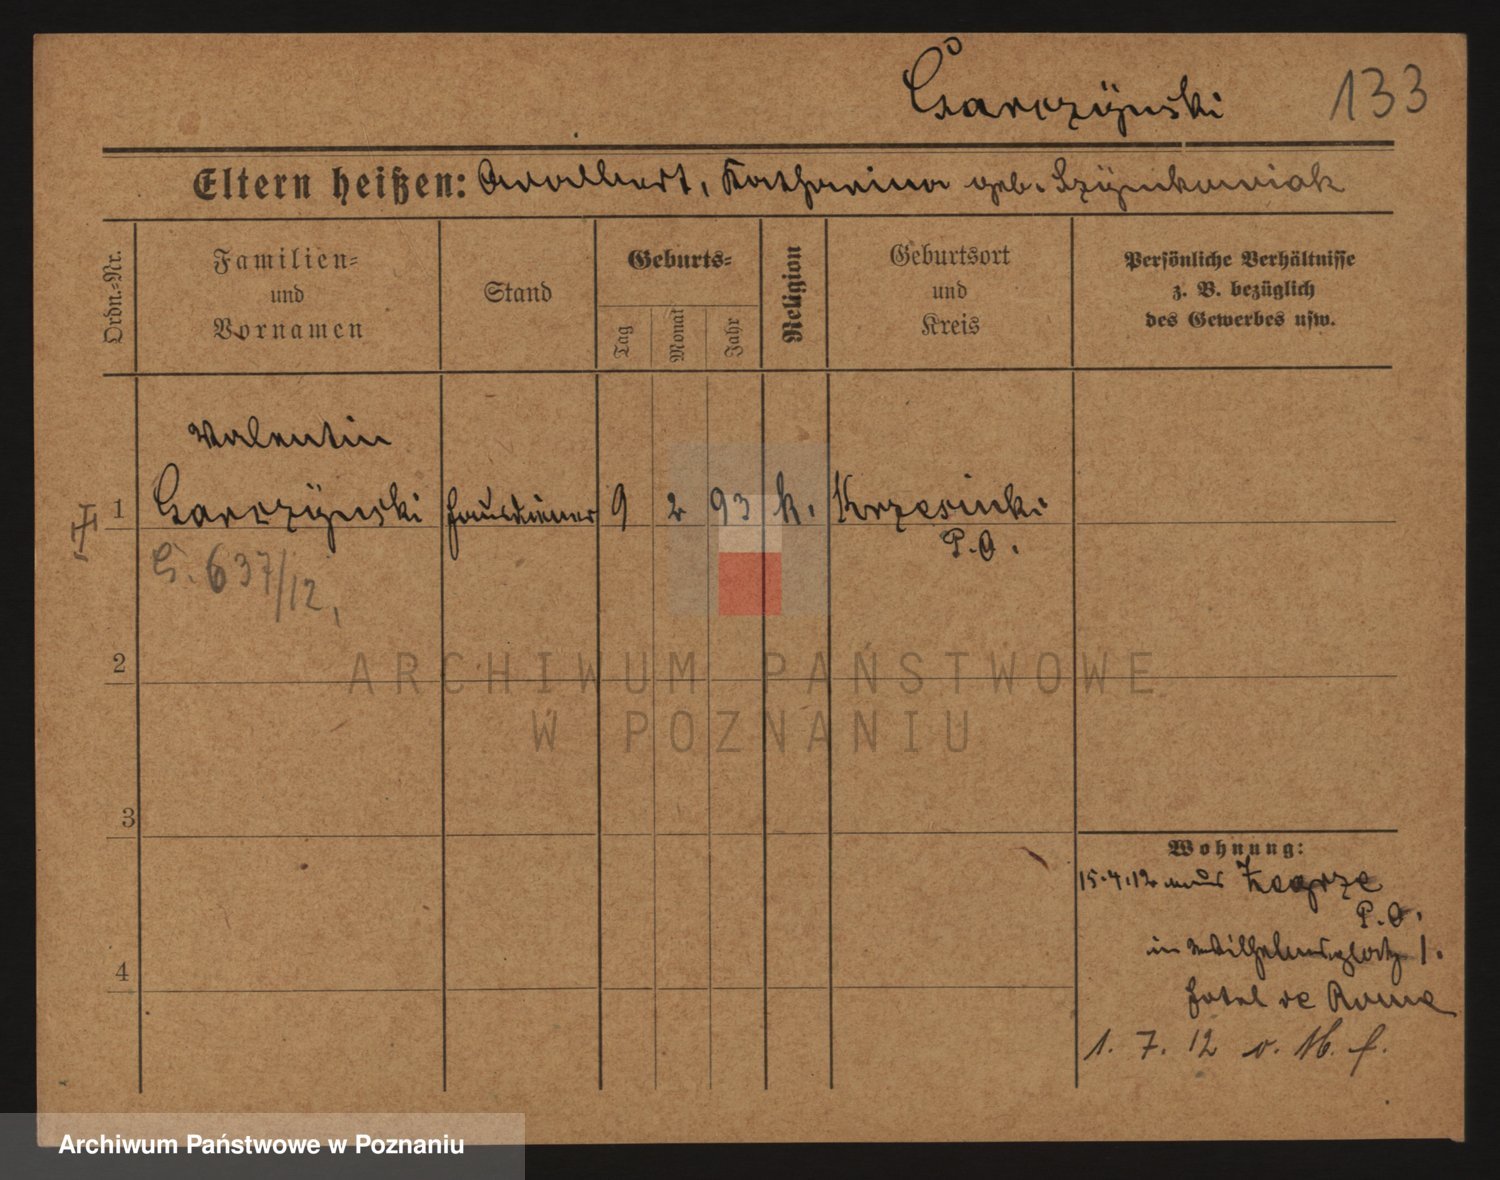 Garczÿnski 133
Eltern heißen: Adalbert, Katharina geb. Szÿmkowiak
Ordn.-Nr.
Familien-
und
Vornamen
Stand
Geburts-
Tag
Monat
Jahr
Religion
Geburtsort
und
Kreis
Persönliche Verhältnisse
z. B. bezüglich
des Gewerbes usw.
Valentin
1 Garczÿnski Hausdiener 9 2 93 k. Krzesinki
P.O.
G. 637/12.
2
ARCHIWUM PAŃSTWOWE
W POZNANIU
3
Wohnung:
15.4.12 aus Zegrze
P.O.
in Wilhelmsplatz 1.
4
Hotel de Rome
1. 7. 12
Archiwum Państwowe w Poznaniu